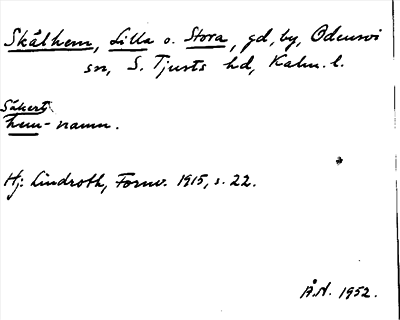 Skälhem, Lilla o. Stora, gd, by, Odensvi
sn, S. Tjusts hd, Kalm. l.
Säkert
hem-namn.
Hj. Lindroth, Fornv. 1915, s. 22.
Å.N. 1952.